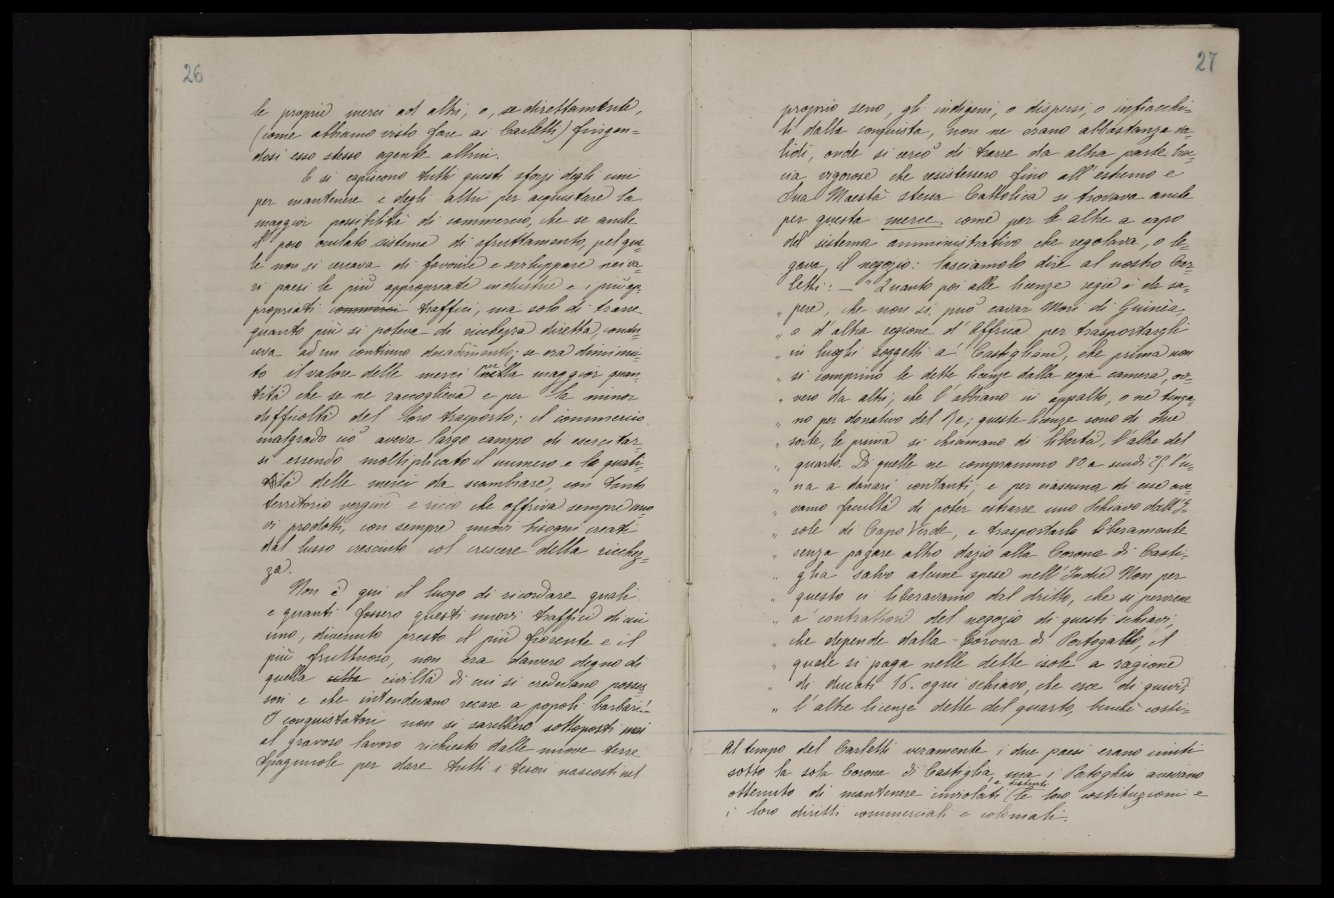 26
le proprie merci ad altri, o, se direttamente,
(come abbiamo visto fare ai Carletti) fingen=
dosi esso stesso agente altrui.
E si capiscono tutti questi sforzi degli uni
per mantenere e degli altri per acquistare la
maggior possibilità di commercio, che se anche
il poco oculato sistema di sfruttamento, pel qua=
le non si cercava di favorire e sviluppare nei va=
ri paesi le più appropriate industrie e i più ap=
propriati commerci traffici, ma solo di trarre
quanto più si poteva di ricchezza diretta, condu
ceva ad un continuo decadimento; se era diminui=
to il valore delle merci per la maggior quan=
tità che se ne raccoglieva e per la minor
difficoltà del loro trasporto; il commercio
malgrado ciò aveva largo campo di esercitar=
si essendo moltiplicato il numero e la quali=
tà delle merci da scambiare, con tanto
territorio vergine e ricco che offriva sempre nuo=
vi prodotti, con sempre nuovi bisogni creati
dal lusso cresciuto col crescere della ricchez=
za.
Non è qui il luogo di ricordare quali
e quanti fossero questi nuovi traffici di cui
uno, divenuto presto il più fiorente e il
più fruttuoso, non era davvero degno di
quella civiltà di cui si credevano posses
sori e che intenderano recare a popoli barbari!
I conquistatori non si sarebbero sottoposti mai
al gravoso lavoro richiesto dalle nuove terre
Spagnuole per dare tutti i tesori nascosti nel
27
proprio seno, gli indigeni, o dispersi, o infiacchi=
ti dalla conquista, non ne erano abbastanza va=
lidi, onde si cercò di trarre da altra parte brac=
cia vigorose che resistessero fino all'estremo e
Sua Maestà stessa Cattolica si trovava anche
per questa merce come per le altre a capo
del sistema amministrativo che regolava, o le=
gava, il negozio: lasciamolo dire al nostro Car=
letti: — "Quanto poi alle licenze regie è da sa=
" pere, che non si può cavar Mori di Guinèa,
" o d'altra regione d'Affrica per trasportargli
" in luoghi soggetti a' Castigliani, che prima non
" si comprino le dette licenze dalla regia camera, ov=
" vero da altri, che l'abbiano in appalto, o ne tenga=
" no per donativo del Re; queste licenze sono di due
" sorte, le prime si chiamano di libertà, l'altre del
" quarto. Di quelle ne comprammo 80 a scudi 25 l'u=
" na a danari contanti, e per ciascuna di esse ave=
" vamo facultà di poter estrarre uno schiavo dall'I=
" sole di Capo Verde, e trasportarlo liberamente
" senza pagare altro dazio alla Corona di Casti=
" glia salvo alcune spese nell'Indie Non per
" questo ci liberavamo dal dritto, che si perviene
" a' contrattori del negozio di questi schiavi,
" che depende dalla Corona di Portogallo, il
" quale si paga nelle dette isole a ragione
" di ducati 16. ogni schiavo, che esce di quivi;
" l'altre licenze dette del quarto, benchè costi=
Al tempo del Carletti veramente i due paesi erano uniti
sotto la sola Corona di Castiglia, ma i Portoghesi avevano
ottenuto di mantenere inviolati e distinti le loro costituzioni e
i loro diritti commerciali e coloniali.